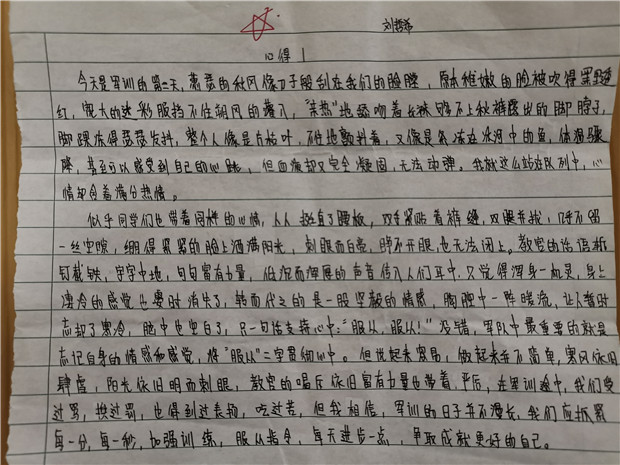 刘哲希
心得1
今天是军训的第二天,萧萧的秋风像刀子般刮在我们的脸膛,原本稚嫩的脸被吹得黑黝
红,宽大的迷彩服挡不住朝风的灌入,“亲热”地舔吻着长袜够不上秋裤露出的脚脖子,
脚踝冻得瑟瑟发抖,整个人像是片枯叶,不住地颤抖着,又像是条冻在冰河中的鱼,体温骤
降,甚至可以感受到自己的心跳,但血液却又完全凝固,无法动弹。我就这么站在队列中,心
情却含着满分热情。
似乎同学们也带着同样的心情,人人挺直了腰板,双手紧贴着裤缝,双腿并拢,几乎不留
一丝空隙,绷得紧紧的脸上洒满阳光,刺眼而白亮,睁不开眼,也无法闭上。教官的话语斩
钉截铁,字字中地,句句富有力量,低沉而浑厚的声音传入人们耳中,只觉得浑身一机灵,身上
凄冷的感觉也霎时消失了,转而代之的是一股坚毅的情感,胸腔中一阵暖流,让人暂时
忘却了寒冷,脑中也空白了,只一句话支持心中:“服从,服从!”没错,军队中最重要的就是
忘记自身的情感和感觉,将“服从”二字贯彻心中。但说起来容易,做起来却不简单,寒风依旧
肆虐,阳光依旧明而刺眼,教官的喝斥依旧富有力量也带着严厉,在军训途中,我们受
过骂,挨过罚,也得到过表扬,吃过苦,但我相信,军训的日子并不漫长,我们应抓紧
每一分,每一秒,加强训练,服从指令,每天进步一点,争取成就更好的自己。